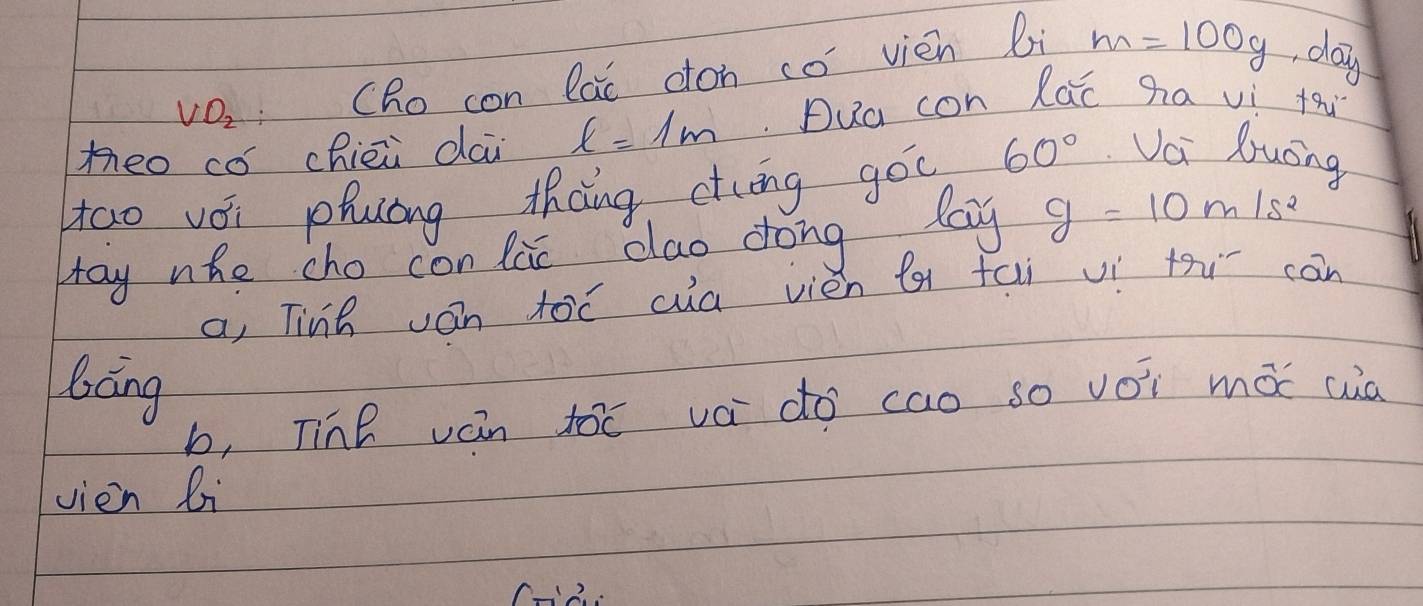 VD₂: Cho con lắc đơn có viên bi m = 100g, dây
theo có chiều dài l = 1m. Đưa con lắc ra vị trí
tạo với phương thẳng đứng góc 60°. Và buông
tay nhẹ cho con lắc dao động lấy g = 10 m/s²
a, Tính vận tốc của viên bi tại vị trí cân
bằng
b, Tính vận tốc và độ cao so với mốc của
viên bi
Giải